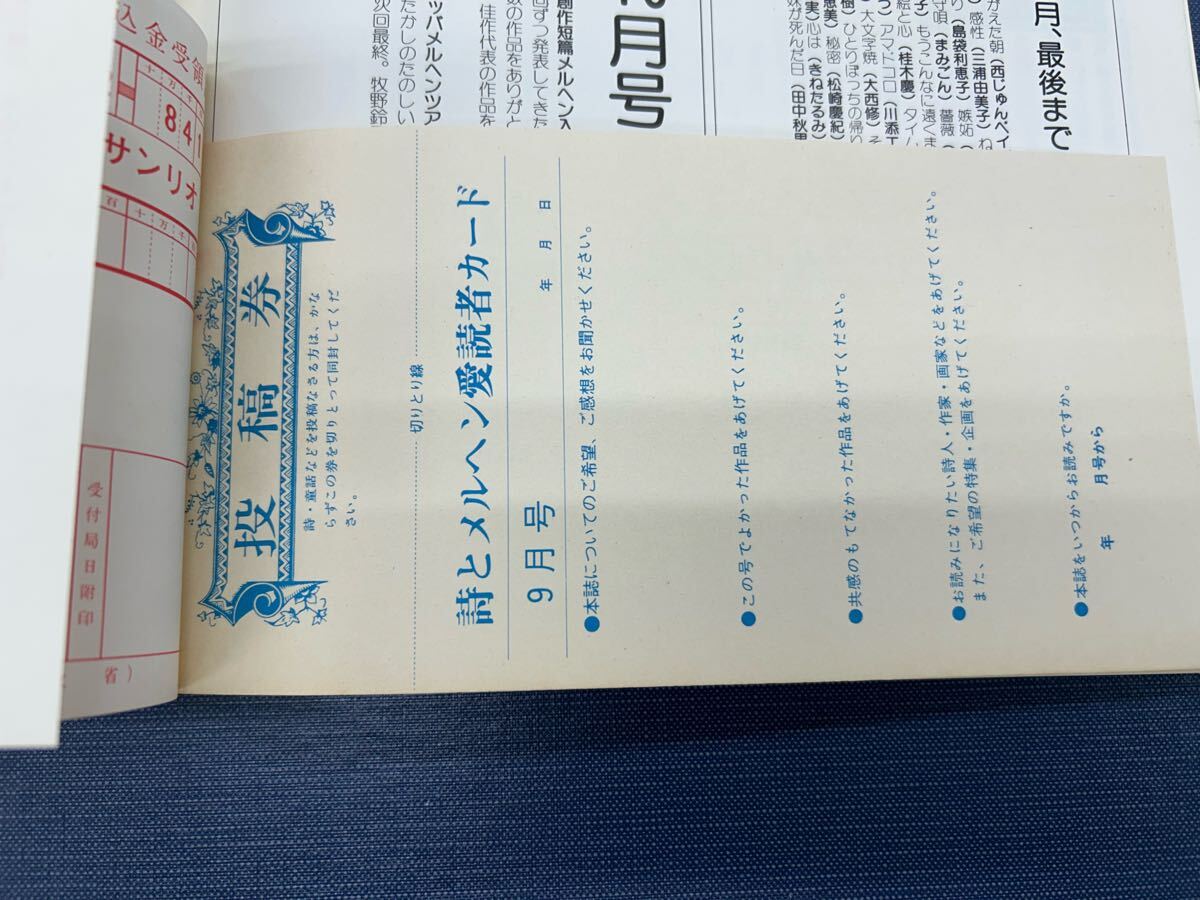 投稿券
詩・童話などを投稿なさる方は、かな
らずこの券を切りとって同封してくだ
さい。
切りとり線
詩とメルヘン愛読者カード
9月号
年 月 日
●本誌についてのご希望、ご感想をお聞かせください。
●この号でよかった作品をあげてください。
●共感のもてなかった作品をあげてください。
●お読みになりたい詩人・作家・画家などをあげてください。
また、ご希望の特集・企画をあげてください。
●本誌をいつからお読みですか。
年 月号から
込金受領
十万千
841
サンリオ
百十万千
受付局日附印
省)
月号
創作短篇メルヘン入
回ずつ発表してきた
数の作品をありがと
佳作代表の作品を
ッパメルヘンツア
たかしのたのしい
次回最終。牧野鈴
月、最後まで
がえた朝(西じゅんぺイ
感性(三浦由美子)ね
り(島袋利恵子)嫉妬(
守唄(まみごん)薔薇(
子)もうこんなに遠くま
絵と心(桂木慶)タイム
つ)アマ・ドコロ(川添
大文字焼(大西修)そ
樹)ひとりぼっちの帰り
恵美)秘密(松崎慶紀)
実)心は(きねたるみ)
妹が死んだ日(田中秋里